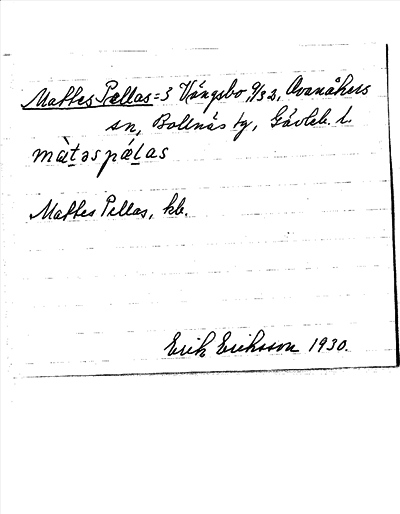 Mattes Pellas = 3 Vängsbo 9/32, Ovanåkers
sn, Bollnäs tg, Gävleb. l.
màt̲əspǽl̲as
Mattes Pellas, kb.
Erik Eriksson 1930.